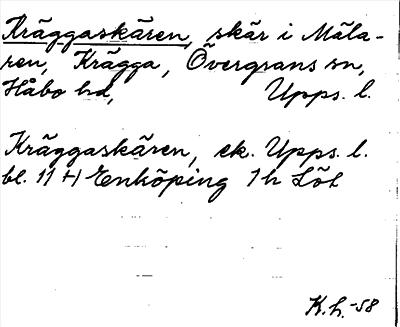 Kräggaskären, skär i Mäla-
ren, Krägga, Övergrans sn,
Håbo hd, Upps. l.
Kräggaskären, ek. Upps. l.
bl. 11 H Enköping 1h Löt
K.h.-58